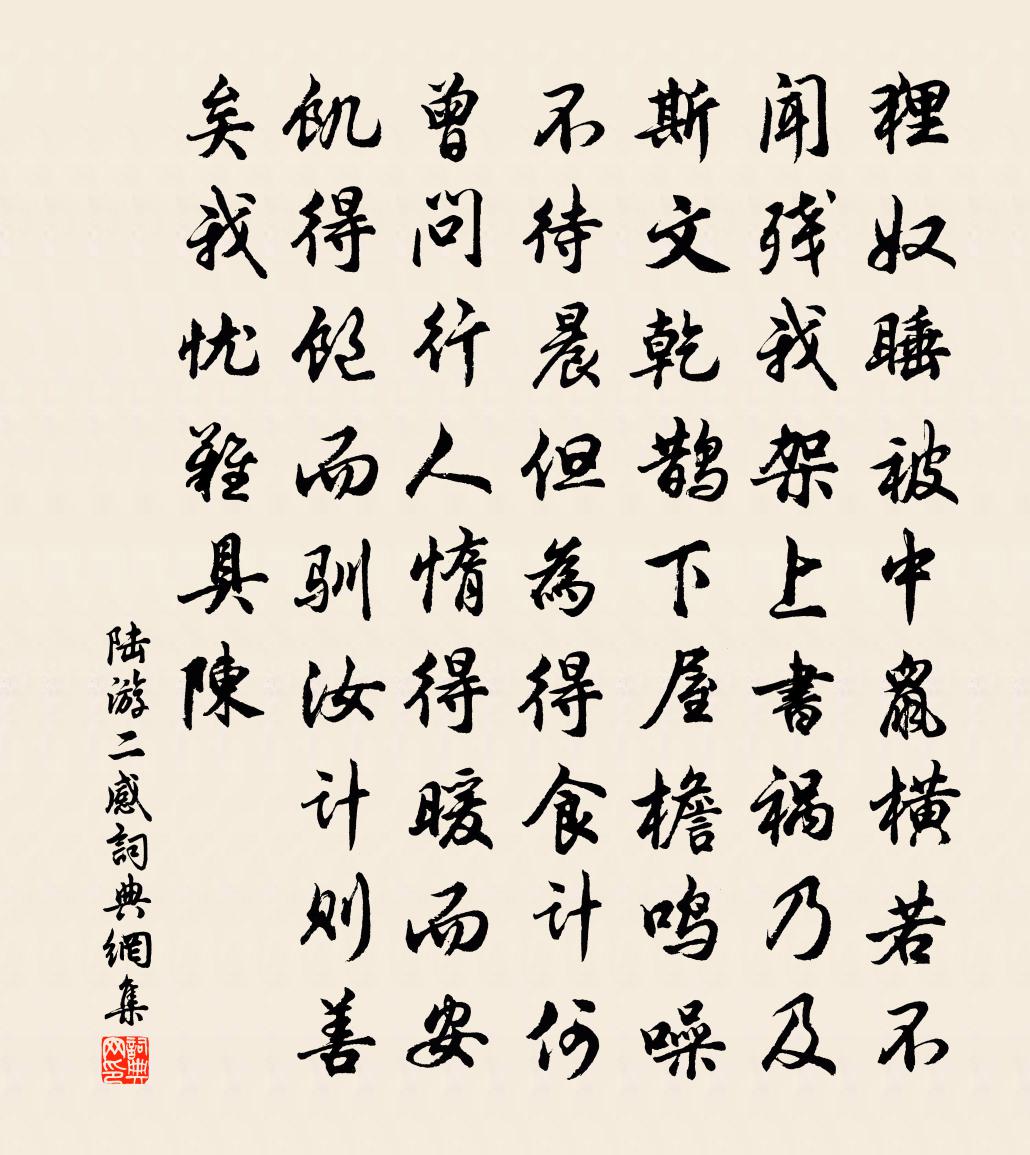 狸奴睡被中鼠橫若不
闻残我架上書祸乃及
斯文乾鹊下屋檐鸣噪
不待晨但為得食计何
曾问行人惰得暖而安
饥得饱而驯汝计则善
矣我忧難具陳
陆游二感詞典網集
詞典网印